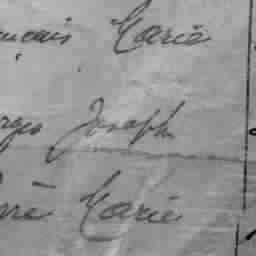 ançais Marie
rges Joseph
erre Marie